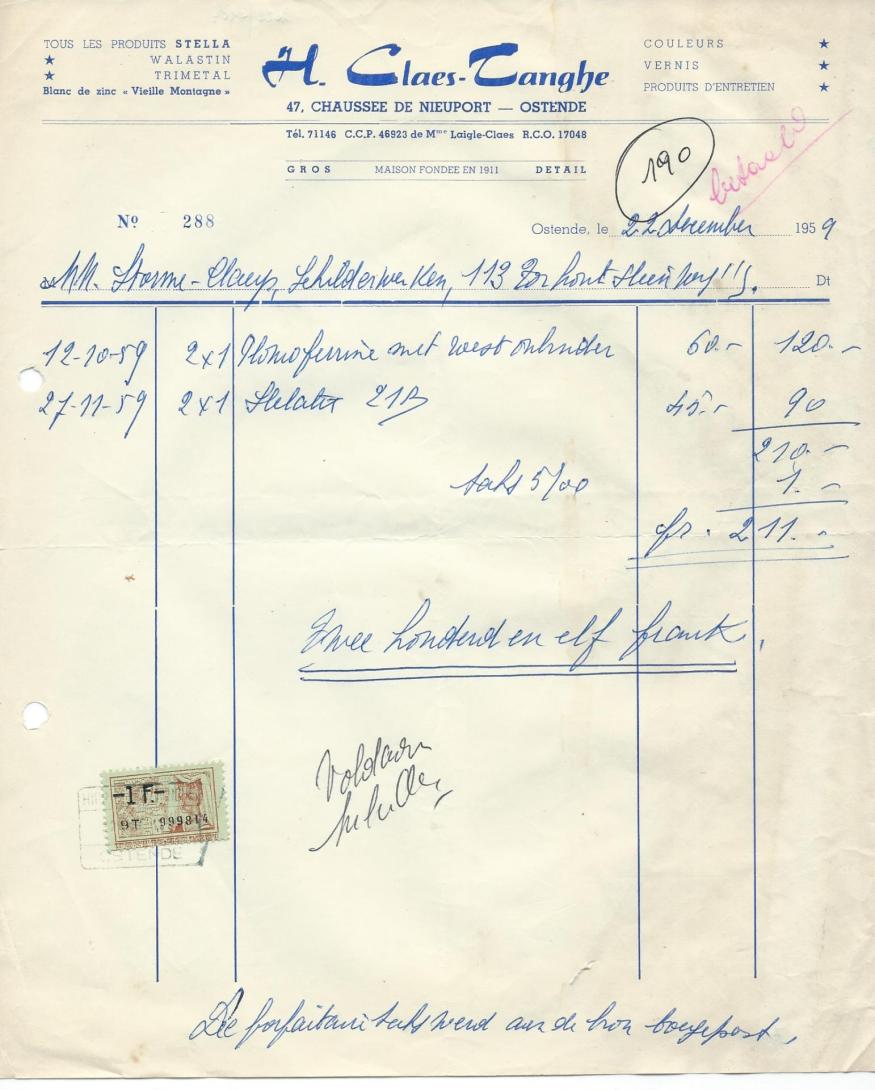 TOUS LES PRODUITS STELLA
★ WALASTIN
★ TRIMETAL
Blanc de zinc « Vieille Montagne »
H. Claes-Tanghe
47, CHAUSSEE DE NIEUPORT — OSTENDE
COULEURS ★
VERNIS ★
PRODUITS D'ENTRETIEN ★
Tél. 71146 C.C.P. 46923 de Mme Laigle-Claes R.C.O. 17048
GROS MAISON FONDEE EN 1911 DETAIL
190
betaald
No 288
Ostende, le 22 december 1959
MM. Storme-Claeys, Schilderwerken, 113 Dt
12-10-59 2x1 met 60.- 120.-
27-11-59 2x1 21B 45.- 90
210.-
taks 5/00 1.-
fr. 211.-
Twee honderd en elf frank.
Voldaan
-1 F.-
9T 999814
OSTENDE
De forfaitaire taks werd aan de bron toegepast.